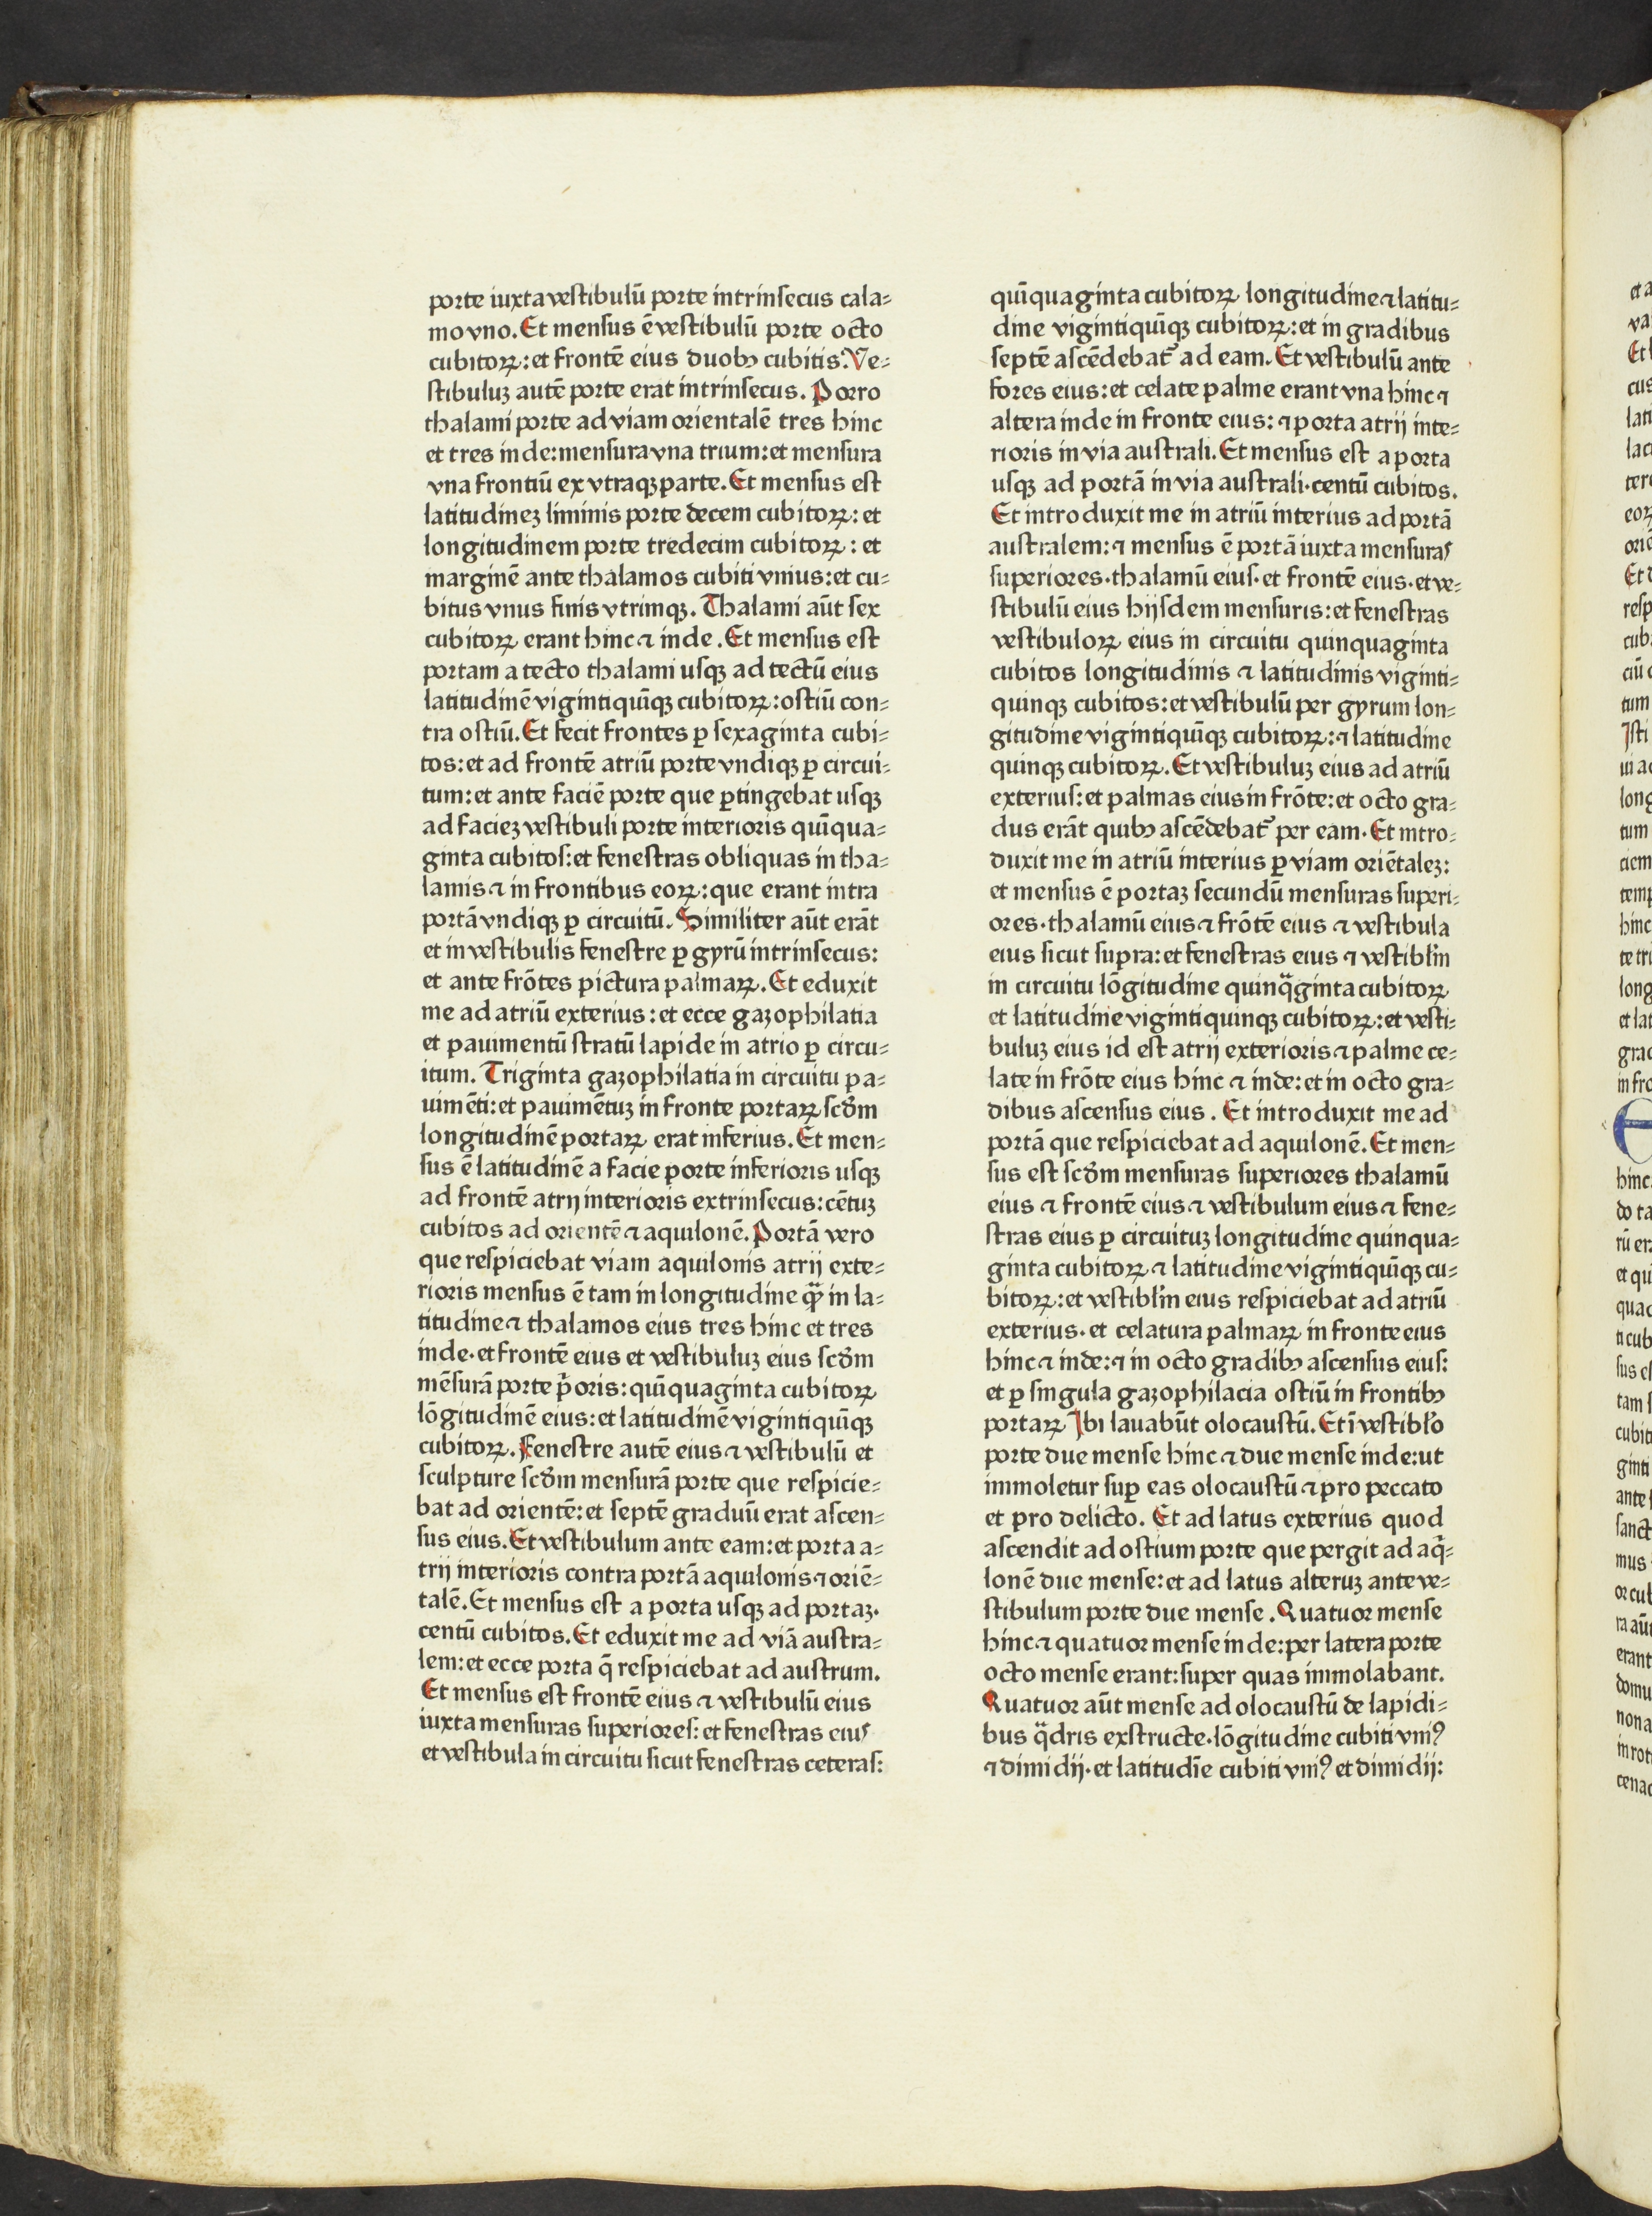 porte iuxta vestibulū porte intrinsecus cala⸗
mo vno. Et mensus ē vestibulū porte octo
cubitoꝝ: et frontē eius duobꝫ cubitis. Ve⸗
stibuluꝫ autē porte erat intrinsecus. Porro
thalami porte ad viam orientalē tres hinc
et tres inde: mensura vna trium: et mensura
vna frontiū ex vtraqꝫ parte. Et mensus est
latitudineꝫ liminis porte decem cubitoꝝ: et
longitudinem porte tredecim cubitoꝝ: et
marginē ante thalamos cubiti vnius: et cu⸗
bitus vnus finis vtrimqꝫ. Thalami aūt sex
cubitoꝝ erant hinc ⁊ inde. Et mensus est
portam a tecto thalami usqꝫ ad tectū eius
latitudinē vigintiquīqꝫ cubitoꝝ: ostiū con⸗
tra ostiū. Et fecit frontes ꝑ sexaginta cubi⸗
tos: et ad frontē atriū porte vndiqꝫ ꝑ circui⸗
tum: et ante faciē porte que ꝑtingebat usqꝫ
ad facieꝫ vestibuli porte interioris quīqua⸗
ginta cubitos: et fenestras obliquas in tha⸗
lamis ⁊ in frontibus eoꝝ: que erant intra
portā vndiqꝫ ꝑ circuitū. Similiter aūt erāt
et in vestibulis fenestre ꝑ gyrū intrinsecus:
et ante frōtes pictura palmaꝝ. Et eduxit
me ad atriū exterius: et ecce gazophilatia
et pauimentū stratū lapide in atrio ꝑ circu⸗
itum. Triginta gazophilatia in circuitu pa⸗
uimēti: et pauimētuꝫ in fronte portaꝝ scd̄m
longitudinē portaꝝ erat inferius. Et men⸗
sus ē latitudinē a facie porte inferioris usqꝫ
ad frontē atrij interioris extrinsecus: cētuꝫ
cubitos ad orientē ⁊ aquilonē. Portā vero
que respiciebat viam aquilonis atrij exte⸗
rioris mensus ē tam in longitudine qꝫ̄ in la⸗
titudine ⁊ thalamos eius tres hinc et tres
inde. et frontē eius et vestibuluꝫ eius scd̄m
mēsurā porte p̄oris: quīquaginta cubitoꝝ
lōgitudinē eius: et latitudinē vigintiquīqꝫ
cubitoꝝ. Fenestre autē eius ⁊ vestibulū et
sculpture scd̄m mensurā porte que respicie⸗
bat ad orientē: et septē graduū erat ascen⸗
sus eius. Et vestibulum ante eam: et porta a⸗
trij interioris contra portā aquilonis ⁊ oriē⸗
talē. Et mensus est a porta usqꝫ ad portaꝫ.
centū cubitos. Et eduxit me ad viā austra⸗
lem: et ecce porta q̄ respiciebat ad austrum.
Et mensus est frontē eius ⁊ vestibulū eius
iuxta mensuras superiores: et fenestras eius
et vestibula in circuitu sicut fenestras ceteras:
quīquaginta cubitoꝝ longitudine ⁊ latitu⸗
dine vigintiquīqꝫ cubitoꝝ: et in gradibus
septē ascēdebat᷑ ad eam. Et vestibulū ante
fores eius: et celate palme erant vna hinc ⁊
altera inde in fronte eius: ⁊ porta atrij inte⸗
rioris in via australi. Et mensus est a porta
usqꝫ ad portā in via australi. centū cubitos.
Et introduxit me in atriū interius ad portā
australem: ⁊ mensus ē portā iuxta mensuras
superiores. thalamū eius. et frontē eius. et ve⸗
stibulū eius hijsdem mensuris: et fenestras
vestibuloꝝ eius in circuitu quinquaginta
cubitos longitudinis ⁊ latitudinis viginti⸗
quinqꝫ cubitos: et vestibulū per gyrum lon⸗
gitudine vigintiquīqꝫ cubitoꝝ: ⁊ latitudine
quinqꝫ cubitoꝝ. Et vestibuluꝫ eius ad atriū
exterius: et palmas eius in frōte: et octo gra⸗
dus erāt quibꝫ ascēdebat᷑ per eam. Et intro⸗
duxit me in atriū interius ꝑ viam oriētaleꝫ:
et mensus ē portaꝫ secundū mensuras superi⸗
ores. thalamū eius ⁊ frōtē eius ⁊ vestibula
eius sicut supra: et fenestras eius ⁊ vestibl̓m
in circuitu lōgitudine quinqᷓginta cubitoꝝ
et latitudine vigintiquinqꝫ cubitoꝝ: et vesti⸗
buluꝫ eius id est atrij exterioris ⁊ palme ce⸗
late in frōte eius hinc ⁊ inde: et in octo gra⸗
dibus ascensus eius. Et introduxit me ad
portā que respiciebat ad aquilonē. Et men⸗
sus est scd̄m mensuras superiores thalamū
eius ⁊ frontē eius ⁊ vestibulum eius ⁊ fene⸗
stras eius ꝑ circuituꝫ longitudine quinqua⸗
ginta cubitoꝝ ⁊ latitudine vigintiquīqꝫ cu⸗
bitoꝝ: et vestibl̓m eius respiciebat ad atriū
exterius. et celatura palmaꝝ in fronte eius
hinc ⁊ inde: ⁊ in octo gradibꝫ ascensus eius:
et ꝑ singula gazophilacia ostiū in frontibꝫ
portaꝝ Ibi lauabūt olocaustū. Et ī vestibl̓o
porte due mense hinc ⁊ due mense inde: ut
immoletur suꝑ eas olocaustū ⁊ pro peccato
et pro delicto. Et ad latus exterius quod
ascendit ad ostium porte que pergit ad aq̄⸗
lonē due mense: et ad latus alteruꝫ ante ve⸗
stibulum porte due mense. Quatuor mense
hinc ⁊ quatuor mense inde: per latera porte
octo mense erant: super quas immolabant.
Quatuor aūt mense ad olocaustū de lapidi⸗
bus qᷓdris exstructe. lōgitudine cubiti vniꝰ
⁊ dimidij. et latitudīe cubiti vniꝰ et dimidij: